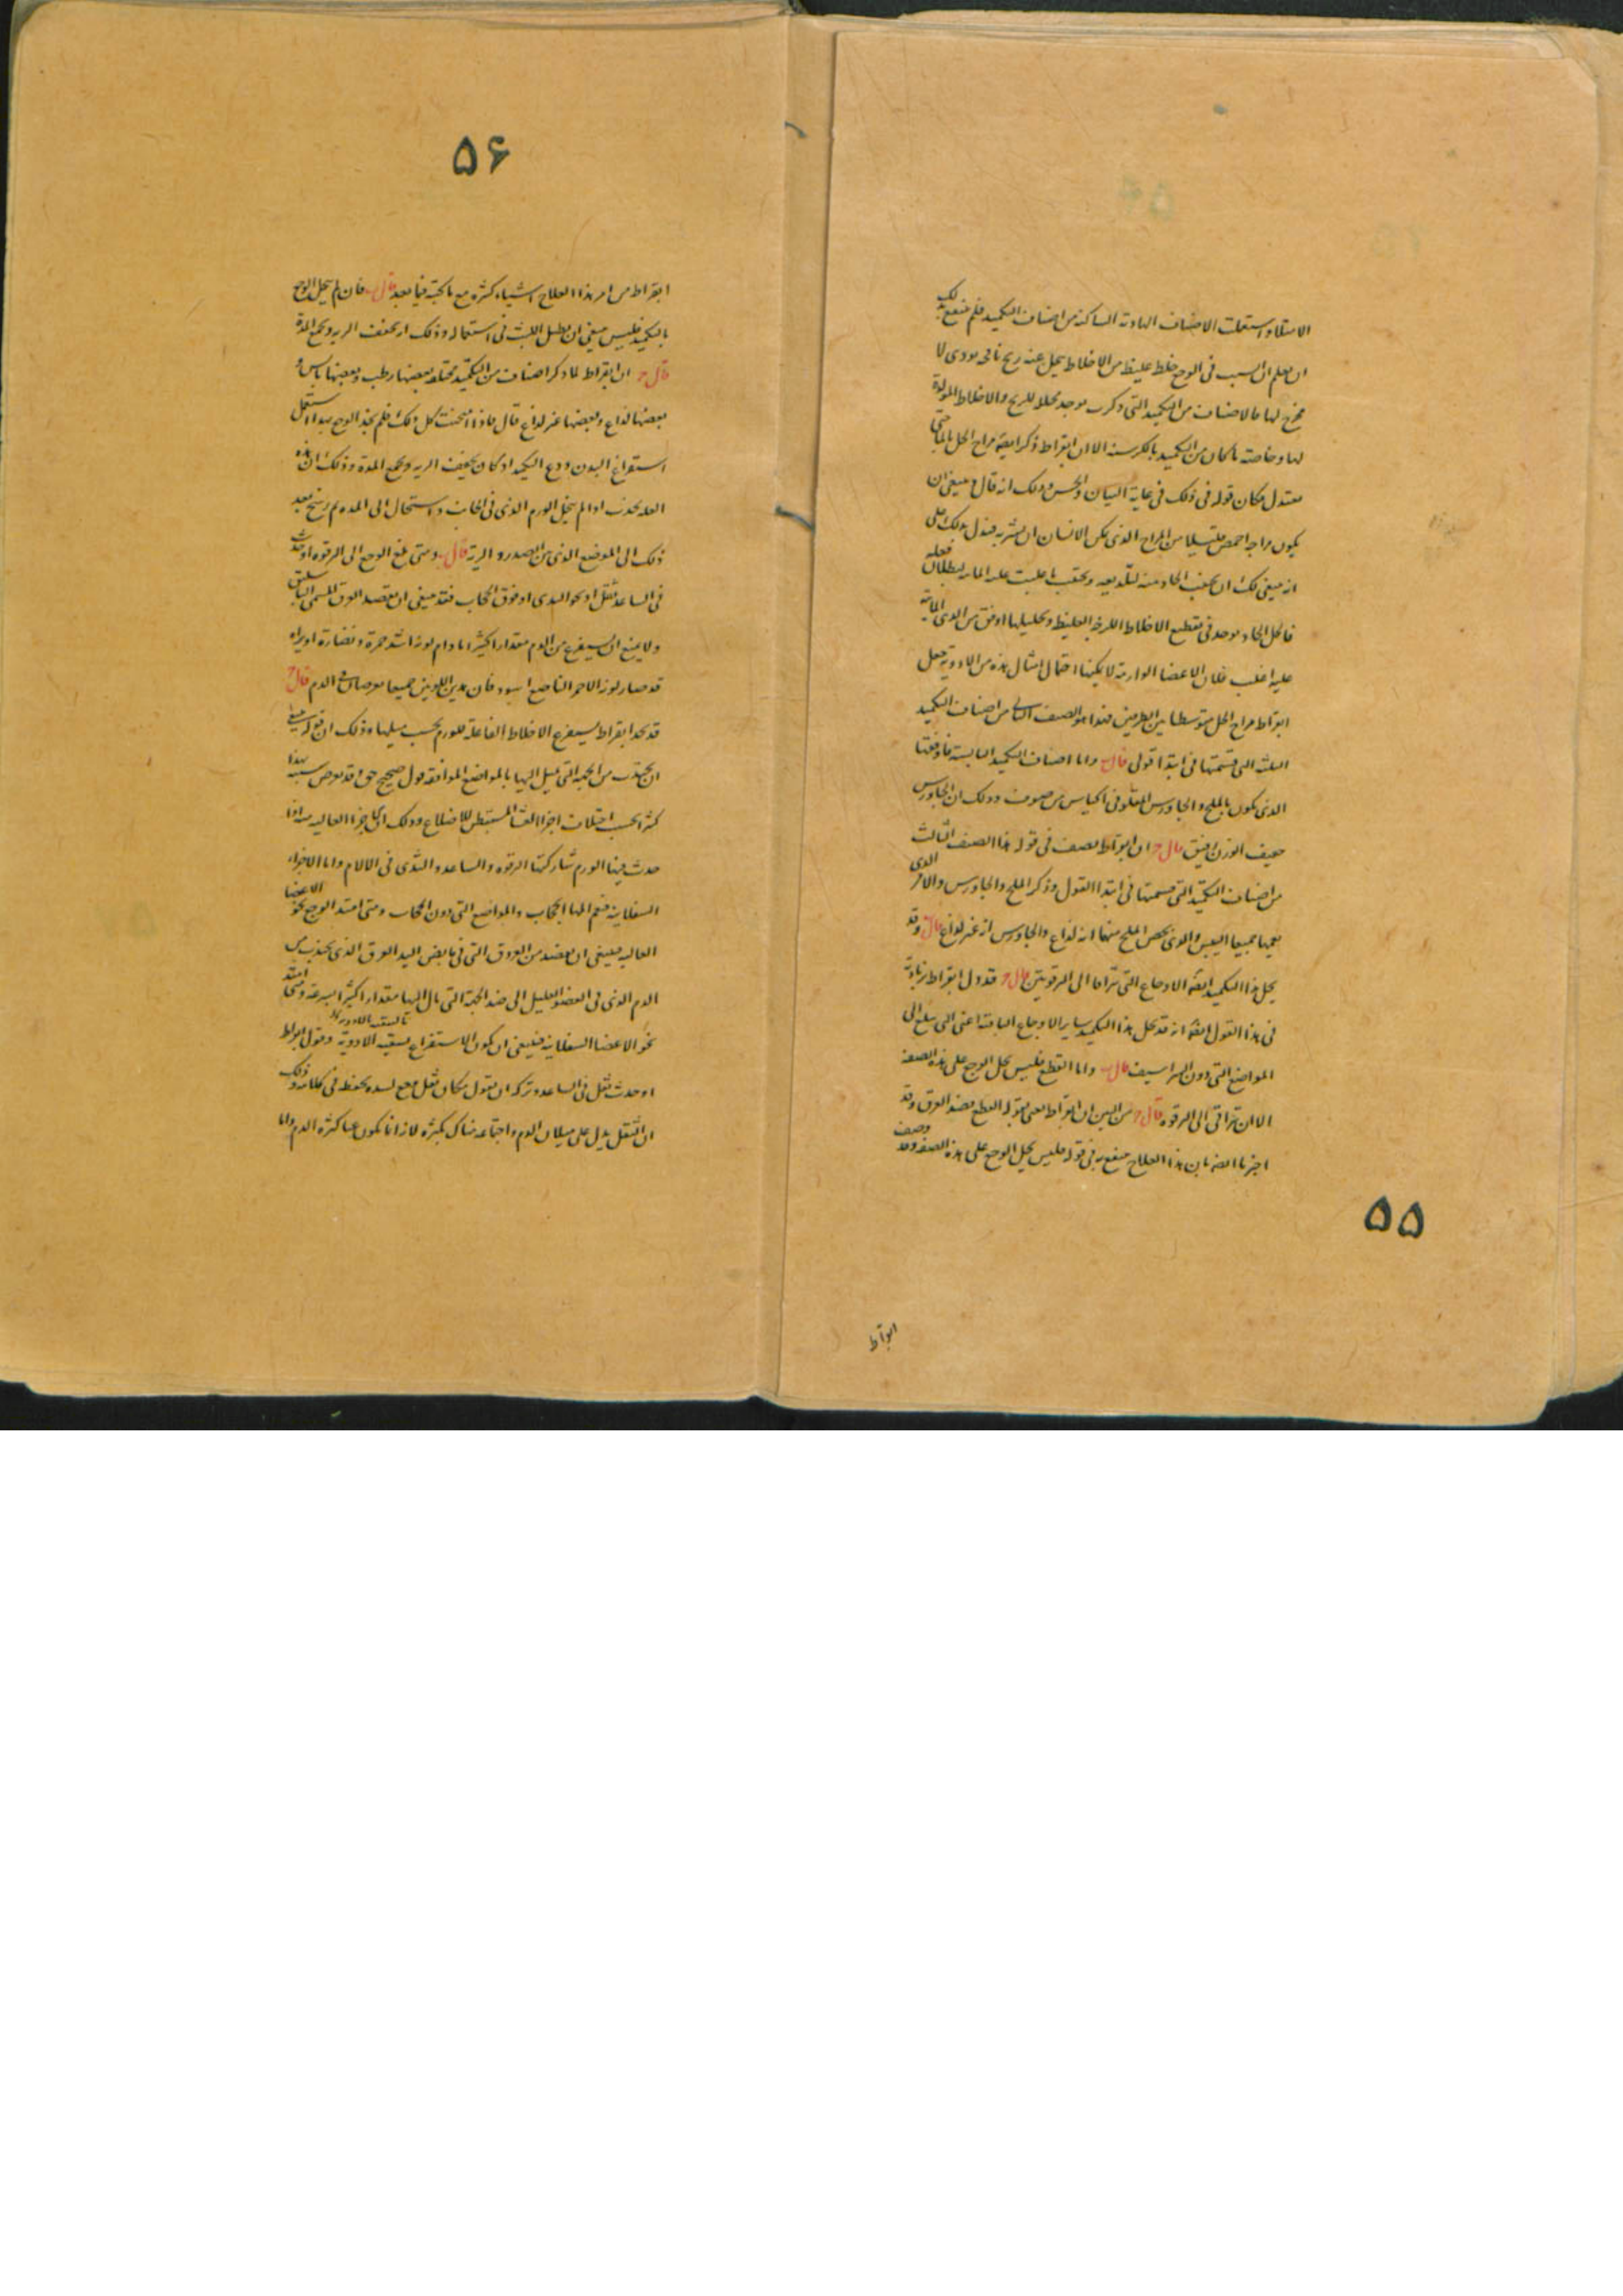 الامتلا واستعملت الاصناف الهادية الساكنة من اصناف التكميد فلم ينتفع بذلك
ان يعلم ان السبب في الوجع خلط غليظ من الاخلاط يحل عنه ريح نافخة مودى لا
مخرج لها فالاصناف من التكميد التي ذكرت يوجد محللا للريح والاخلاط المولدة
لها وخاصة ما كان من التكميد بالكرسنة الا ان ابقراط ذكر ايضا مزاج الخل بالماء حتى
معتدل فكان قوله في ذلك في غاية البيان والحسن وذلك انه قال وينبغي ان
يكون مزاجه احمض قليلا من المزاج الذي يمكن الانسان ان يشربه فيدل بذلك على
انه ينبغي لك ان تجنب الحاد منه لتلذيعه وتجنب ما غلبت عليه المائية لبطلان فعله
فالخل الحاد يوجد في تقطيع الاخلاط اللزجة الغليظة وتحليلها اوفق من الذي المائية
عليه اغلب فلان الاعضا الوارمة لا يمكنها احتمال امثال هذه من الادوية جعل
ابقراط مزاج الخل متوسطا بين الطرفين فهذا هو الصنف الثاني من اصناف التكميد
الثلثة التي قسمتها في ابتدا قولي قال ب واما اصناف التكميد اليابسة فاوفقها
الذي يكون بالملح والجاورس المقلو في اكياس من صوف وذلك ان الجاورس
خفيف الوزن لين قال ج ان ابقراط يصف في قوله هذا الصنف الثالث
من اصناف التكميد التي قسمتها في ابتدا القول وذكر الملح والجاورس والامر الذي
يعمهما جميعا اليبس والذي يخص الملح منهما انه لذاع والجاورس انه غير لذاع قال ب وقد
يحل هذا التكميد ايضا الاوجاع التي تتراقا الى الترقوتين قال ج قد دل ابقراط زيادة
في هذا القول ايضا انه قد يحل هذا التكميد ساير الاوجاع الباقية اعني التي تبلغ الى
المواضع التي دون الشراسيف قال ب واما القطع فليس يحل الوجع على هذه الصفة
الا ان تراقى الى الترقوة قال ج من البين ان ابقراط يعني بقوله القطع فصد العرق وقد
اخبرنا ايضا بان هذا العلاج ينتفع به في قوله فليس يحل الوجع على هذه الصفة وقد وصف
٥٥
ابقراط
٥۶
ابقراط من امر هذا العلاج اشياء كثيرة مع ما كتبته فيما بعد قال ب فان لم يحل الوجع
بالتكميد فليس ينبغي ان يطيل اللبث في استعماله وذلك انه يجفف الرية ويجمع المدة
قال ج ان ابقراط لما ذكر اصناف من التكميد مختلفة بعضها رطب وبعضها يابس و
بعضها لذاع وبعضها غير لذاع قال فاذا امتحنت كل ذلك فلم تجد الوجع يهدا استعمل
استفراغ البدن ودع التكميد اذ كان يجفف الرية ويجمع المدة وذلك ان هذه
العلة تحدث اذا لم يتحلل الورم الذي في الحجاب واستحال الى المدة ثم رشح بعد
ذلك الى الموضع الذي بين الصدر والرية قال ب ومتى بلغ الوجع الى الترقوة او حدث
في الساعد ثقل او نحو الثدي او فوق الحجاب فقد ينبغي ان يفصد العرق المسمى الباسليق
ولا يمتنع ان يستفرغ من الدم مقدارا كثيرا ما دام لونه اشد حمرة ونضارة او يراه
قد صار لونه الاحمر الناصع اسود فان هذين اللونين جميعا يعرضان في الدم قال ج
قد نجد ابقراط يستفرغ الاخلاط الفاعلة للورم بحسب ميلها وذلك ان قوله ينبغي
ان يجتذب من الجهة التي تميل اليها بالمواضع الموافقة قول صحيح حق وقد يعرض بسبب هذا
كثيرا بحسب اختلاف اجزا الغشا المستبطن للاضلاع وذلك ان الاجزا العالية منه اذا
حدث فيها الورم شاركتها الترقوة والساعد والثدي في الالام واما الاجزاء
السفلانية فتعم المها الحجاب والمواضع التي دون الحجاب ومتى امتد الوجع نحو الاعضا
العالية فينبغي ان يفصد من العروق التي في مابض اليد العرق الذي يجذب من
الدم الذي في العضو العليل الى ضد الجهة التي مال اليها مقدارا كثيرا بسرعة ومتى امتد
نحو الاعضا السفلانية فينبغي ان يكون الاستفراغ بسقيه الادوية وقول ابقراط
او حدث ثقل في الساعد وتركه ان يقول مكان ثقل وجع لشدة تحفظه في كلامه وذلك
ان الثقل يدل على ميلان الدم واجتماعه هناك بكثرة لانه انما يكون عن كثرة الدم واما